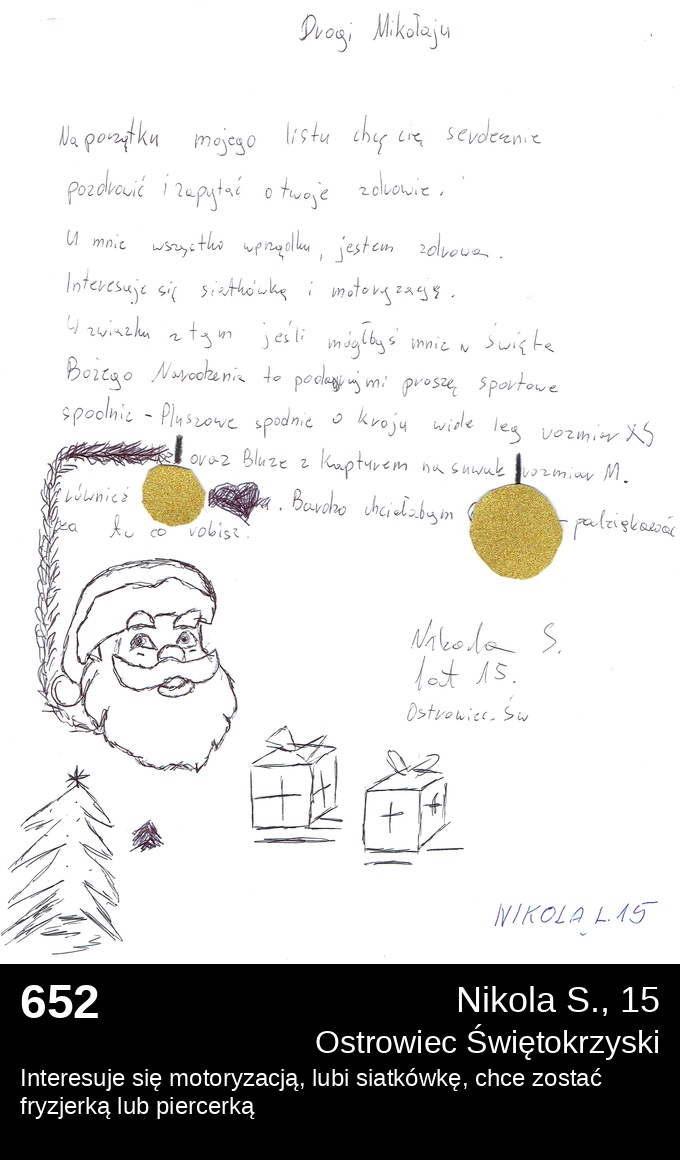 Drogi Mikołaju
Na początku mojego listu chcę cię serdecznie
pozdrowić i zapytać o twoje zdrowie.
U mnie wszystko wprządku, jestem zdrowa.
Interesuje się siatkówką i motoryzacją.
W zwiazku z tym jeśli mógłbyś mnie w święta
Bożego Narodzenia to podaruj mi proszę sportowe
spodnie - Pluszowe spodnie o kroju wide leg rozmiar XS
oraz Bluze z kapturem na suwak rozmiar M.
również . Bardzo chciałabym podziękować
za tu co robisz.
Nikola S.
lat 15.
Ostrowiec-Św
NIKOLA L.15
652
Nikola S., 15
Ostrowiec Świętokrzyski
Interesuje się motoryzacją, lubi siatkówkę, chce zostać
fryzjerką lub piercerką